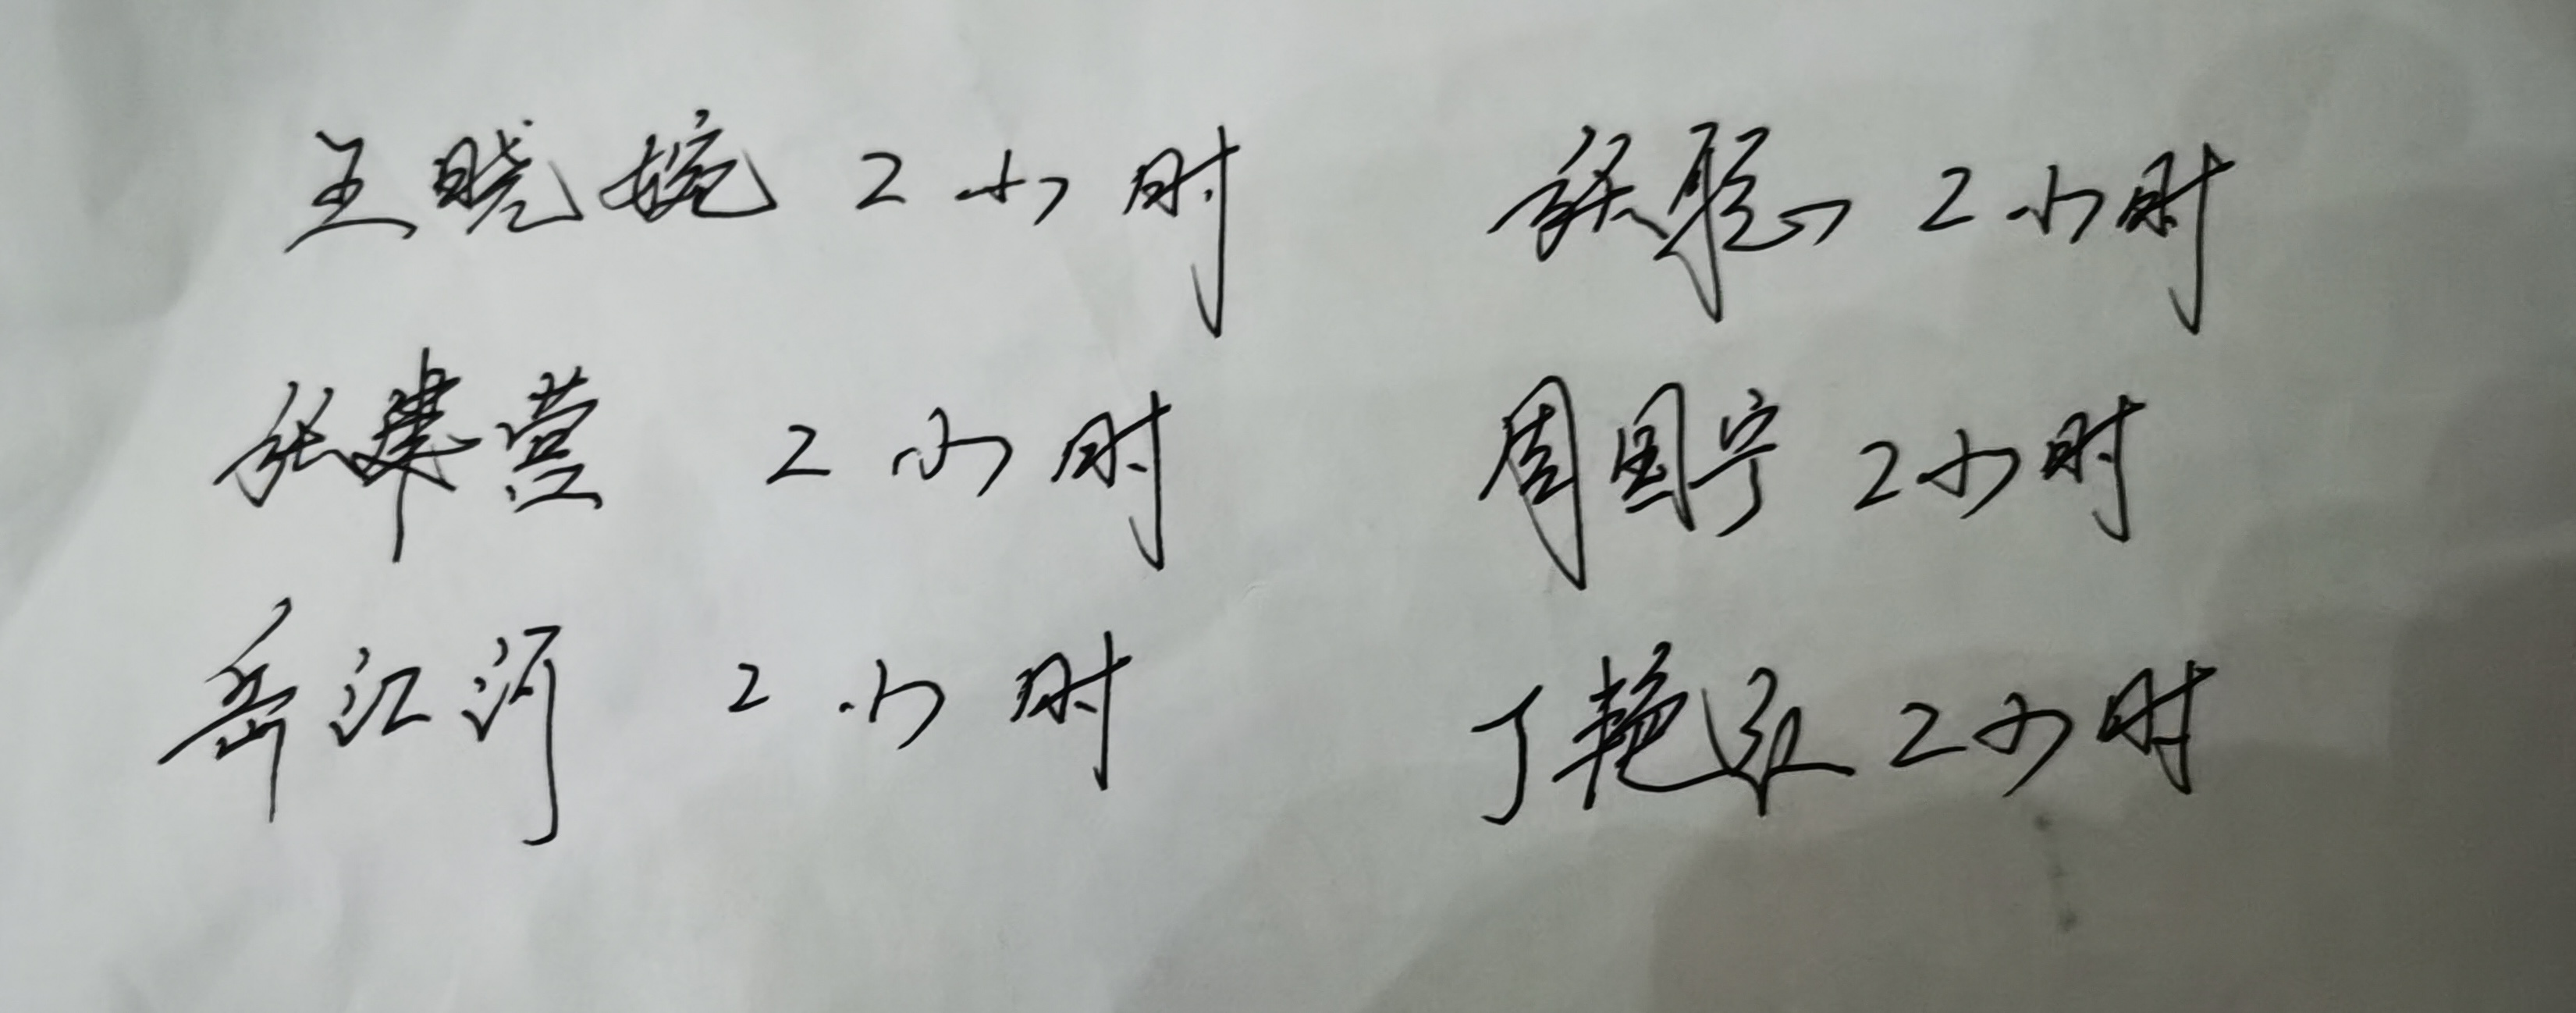 王晓婉 2小时 张聪 2小时
张 营 2小时 周国宁 2小时
岳江河 2小时 丁艳 2小时